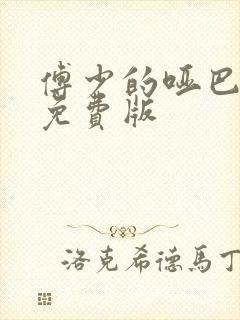 傅少的哑巴
免費版
洛克希德馬丁